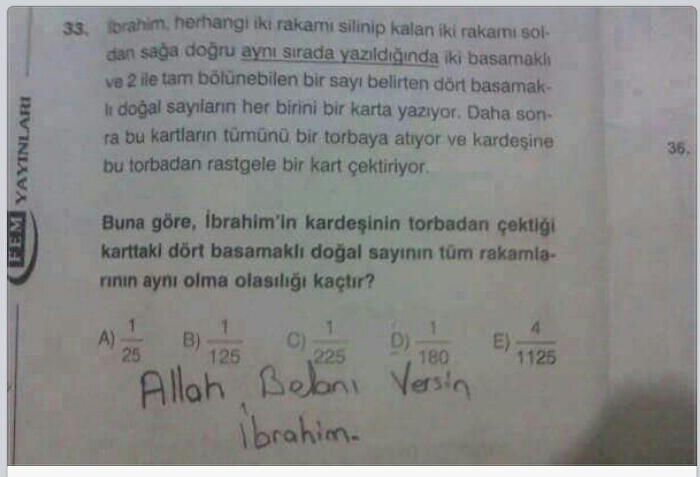 33. İbrahim, herhangi iki rakamı silinip kalan iki rakamı sol-
dan sağa doğru aynı sırada yazıldığında iki basamaklı
ve 2 ile tam bölünebilen bir sayı belirten dört basamak-
lı doğal sayıların her birini bir karta yazıyor. Daha son-
ra bu kartların tümünü bir torbaya atıyor ve kardeşine
bu torbadan rastgele bir kart çektiriyor.
Buna göre, İbrahim'in kardeşinin torbadan çektiği
karttaki dört basamaklı doğal sayının tüm rakamla-
rının aynı olma olasılığı kaçtır?
A) 1/25 B) 1/125 C) 1/225 D) 1/180 E) 4/1125
Allah Belanı Versin
İbrahim.
FEM YAYINLARI
36.